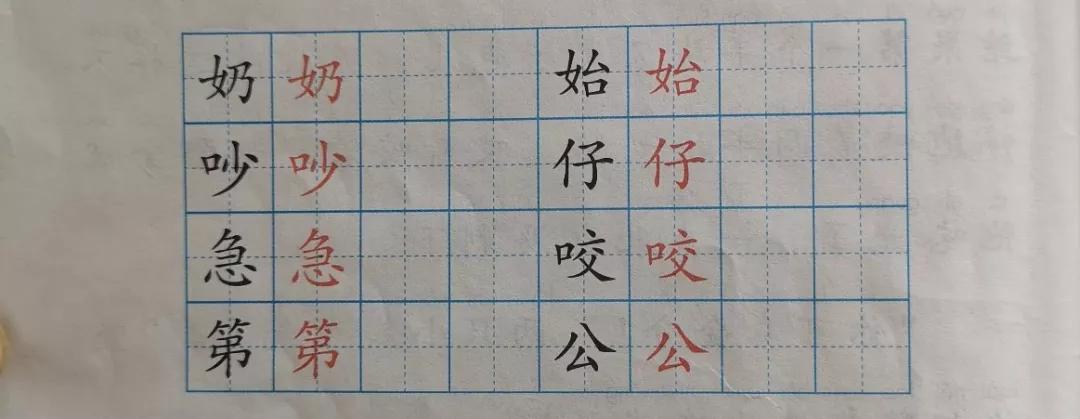 奶 奶 始 始
吵 吵 仔 仔
急 急 咬 咬
第 第 公 公